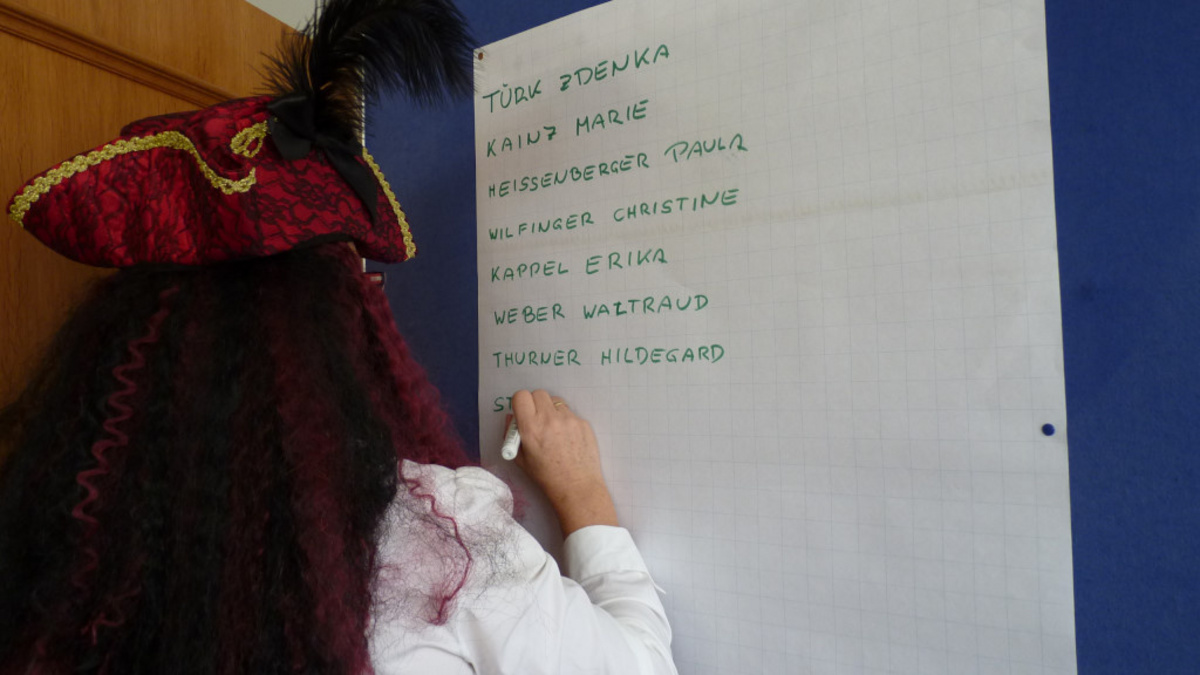 TÜRK ZDENKA
KAINZ MARIE
HEISSENBERGER PAULA
WILFINGER CHRISTINE
KAPPEL ERIKA
WEBER WALTRAUD
THURNER HILDEGARD
ST